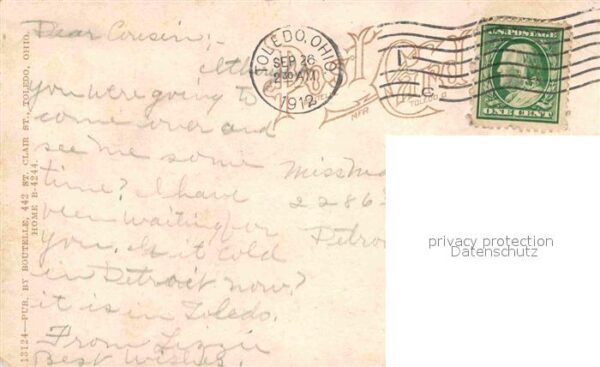 Dear Cousin;-
I tho
you were going to
come over and
see me some
time? I have
been waiting for
you. Is it cold
in Detroit now?
it is in Toledo.
From Lizzie
Best Wishes.
Miss Ma
2286
Detro
TOLEDO, OHIO
SEP 26
230 AM
1912
1
C
Post Card
MFR
TOLEDO, O.
U.S. POSTAGE
ONE CENT
13124—PUB. BY BOUTELLE, 442 ST. CLAIR ST., TOLEDO, OHIO.
HOME B-4244.
privacy protection
Datenschutz